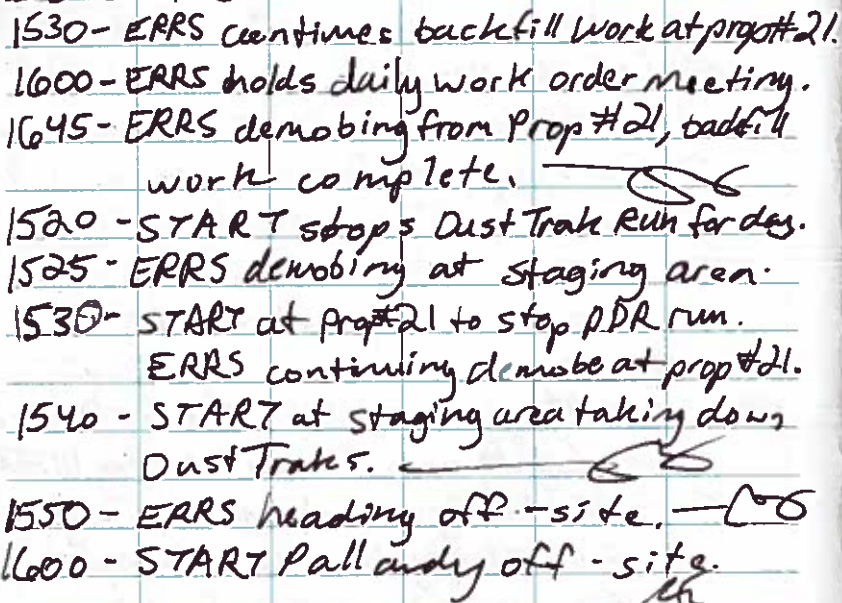 1530- ERRS continues backfill work at prop#21.
1600- ERRS holds daily work order meeting.
1645- ERRS demobing from Prop #21, backfill
work complete.
1520 - START stops Dust Trak Run for day.
1525- ERRS demobing at staging area.
1530- START at prop#21 to stop PDR run.
ERRS continuing demobe at prop #21.
1540 - START at staging area taking down
Dust Traks.
1550- ERRS heading off-site.
1600- START Pall and off-site.